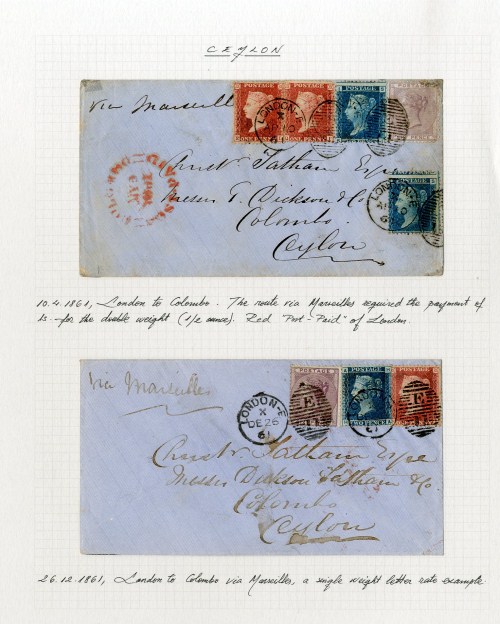 CEYLON
POSTAGE POSTAGE POSTAGE
ONE PENNY ONE PENNY
via Marseilles
LONDON-E
X
61
PAID
Christr. Tatham Esqre
Messrs T. Dickson & Co
LONDON-E
Colombo
61
Ceylon
10.4.1861, London to Colombo. The route via Marseilles required the payment of
1s.- for the double weight (1/2 ounce). Red "Post-Paid" of London.
Via Marseilles
POSTAGE POSTAGE POSTAGE
LONDON-E
X
DE 26
61
E
TWO PENCE
LONDON-E
61
E
Christr. Tatham Esqre
Messrs Dickson Tatham & Co.
Colombo
Ceylon
26.12.1861, London to Colombo via Marseilles, a single weight letter rate example.